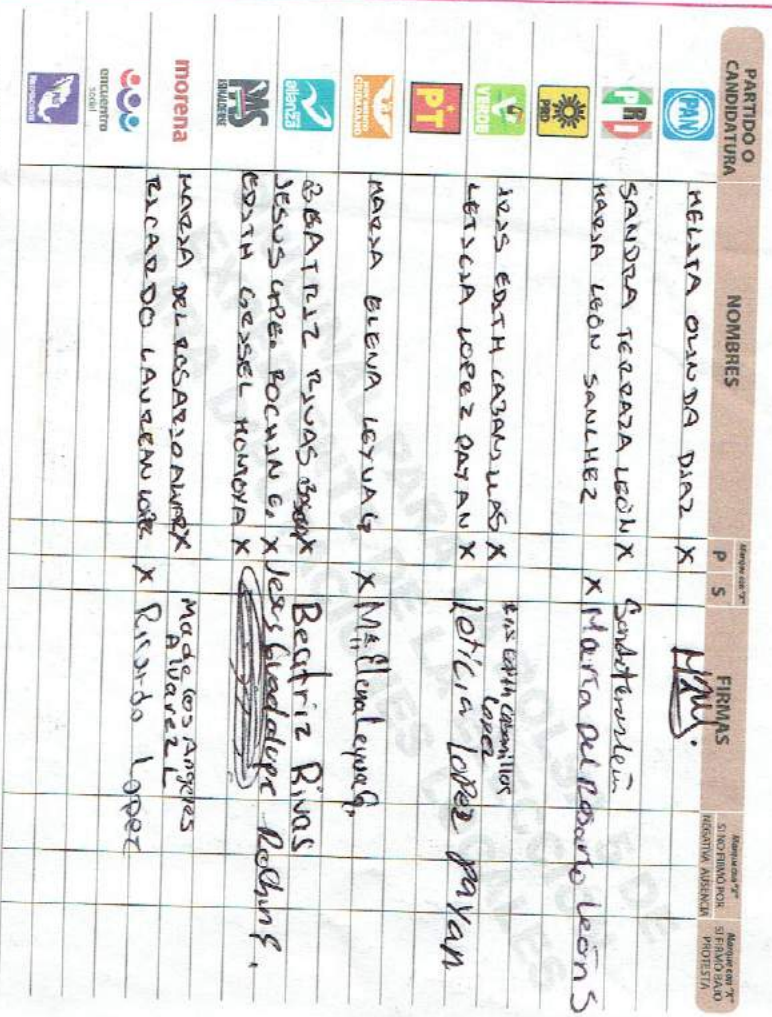 PARTIDO O
CANDIDATURA
NOMBRES
Marque con "X"
P S
FIRMAS
Marque con "X"
SI NO FIRMÓ POR
NEGATIVA AUSENCIA
Marque con "X"
SI FIRMÓ BAJO
PROTESTA
PAN
MELITA OLINDA DIAZ X
PRI
SANDRA TERRAZA LEÓN X
MARIA LEÓN SANCHEZ X Maria Del Rosario León S
PRD
VERDE
IRIS EDITH CABANILLAS X Iris Edith Cabanillas
Lopez
LETICIA LOPEZ PAYAN X Leticia Lopez Payan
PT
MOVIMIENTO
CIUDADANO
MARIA ELENA LEYVA G X Ma Elena Leyva G.
alianza
BEATRIZ RIVAS X Beatriz Rivas
JESUS GPE. ROCHIN E. X Jesus Guadalupe Rochin E.
PAS
SINALOENSE
EDITH GRISSEL MONTOYA X
morena
MARIA DEL ROSARIO ALVAREZ X Ma de los Angeles
Alvarez L
encuentro
social
RICARDO LAUREAN LOPEZ X Ricardo Lopez
ORIGINAL PARA LA BOLSA DE
EXPEDIENTE DE LA ELECCIÓN
PARA DIPUTACIONES LOCALES